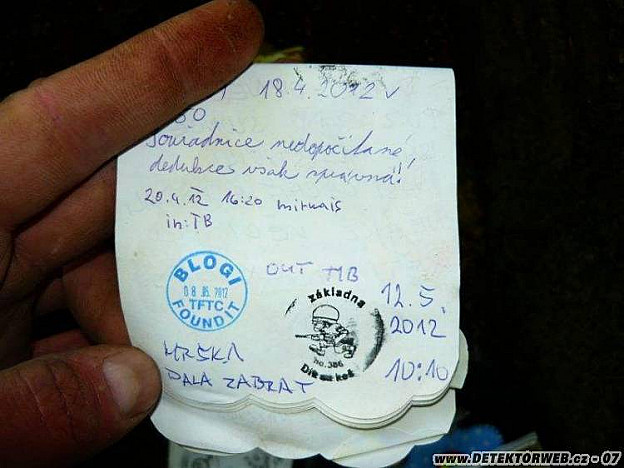 18.4.2012
Souřadnice nedopočítané!
dedukce však správná!
20.4.12 16:20 mirmais
in: TB
OUT MB
BLOGI
08.05.2012
TFTC
FOUND IT
základna
no. 386
12.5.
2012
10:10
MRŠKA
DALA ZABRAT
www.DETEKTORWEB.cz - 07